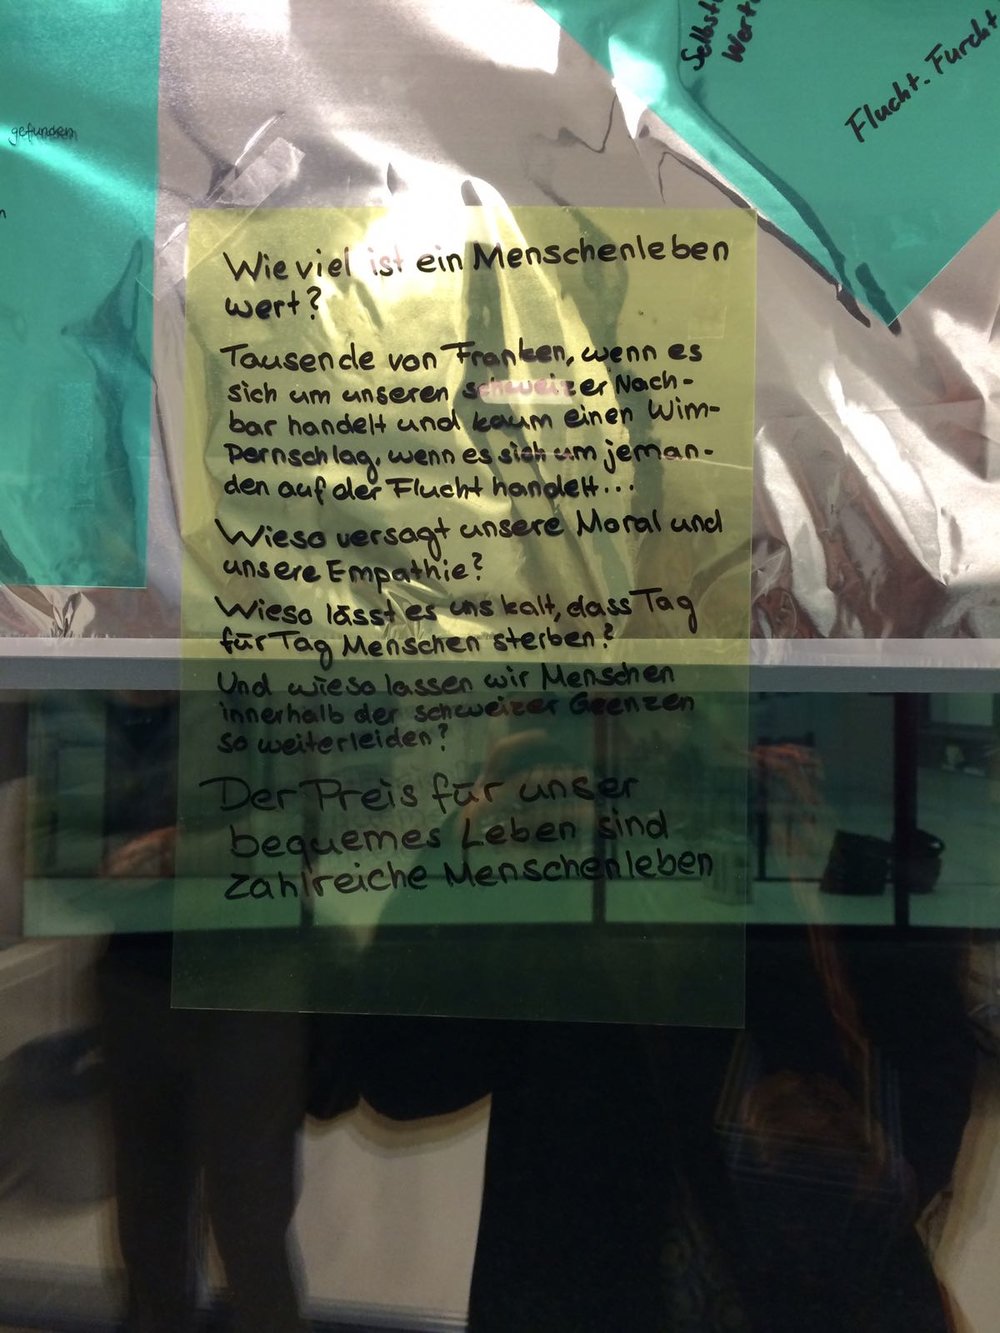 gefunden
Selbst
Werte
Flucht. Furcht
Wie viel ist ein Menschenleben
wert?
Tausende von Franken, wenn es
sich um unseren schweizer Nach-
bar handelt und kaum einen Wim-
pernschlag, wenn es sich um jeman-
den auf der Flucht handelt...
Wieso versagt unsere Moral und
unsere Empathie?
Wieso lässt es uns kalt, dass Tag
für Tag Menschen sterben?
Und wieso lassen wir Menschen
innerhalb der schweizer Grenzen
so weiterleiden?
Der Preis für unser
bequemes Leben sind
zahlreiche Menschenleben